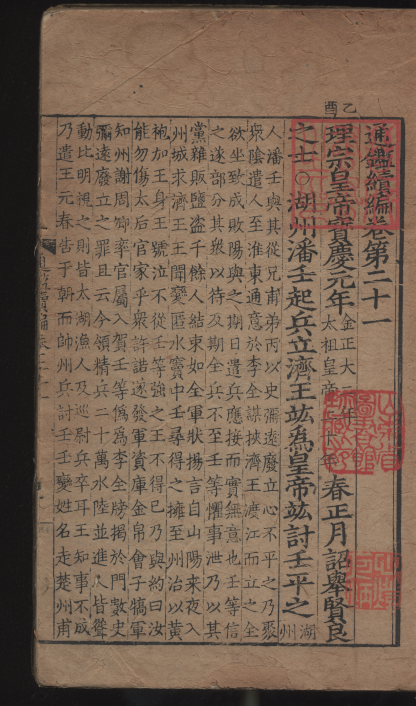 通鑑續編卷第二十一
乙酉
理宗皇帝寶慶元年 金正大二年 太祖皇帝二十年 春正月詔舉賢良
之士○湖州潘壬起兵立濟王竑為皇帝竑討壬平之 湖州
人潘壬與其從兄甫弟丙以史彌遠廢立心不平之乃聚
衆陰遣人至淮東通意於李全謀挾濟王渡江而立之全
欲坐致成敗陽與之期日遣兵應接而實無意也壬等信
之遂部分其衆以待及期全兵不至壬等懼事泄乃以其
黨雜販鹽盗千餘人結束如全軍狀揚言自山陽來夜入
州城求濟王王聞變匿水竇中壬尋得之擁至州治以黄
袍加王身王號泣不從壬等強之王不得已乃與約曰汝
能勿傷太后官家乎衆許諾遂發軍資庫金帛會子犒軍
知州謝周卿率官屬入賀壬等偽為李全牓揭於門數史
彌遠廢立之罪且云今領精兵二十萬水陸並進人皆聳
動比明視之則皆太湖漁人及巡尉兵卒耳王知事不成
乃遣王元春告于朝而帥州兵討壬壬變姓名走楚州甫